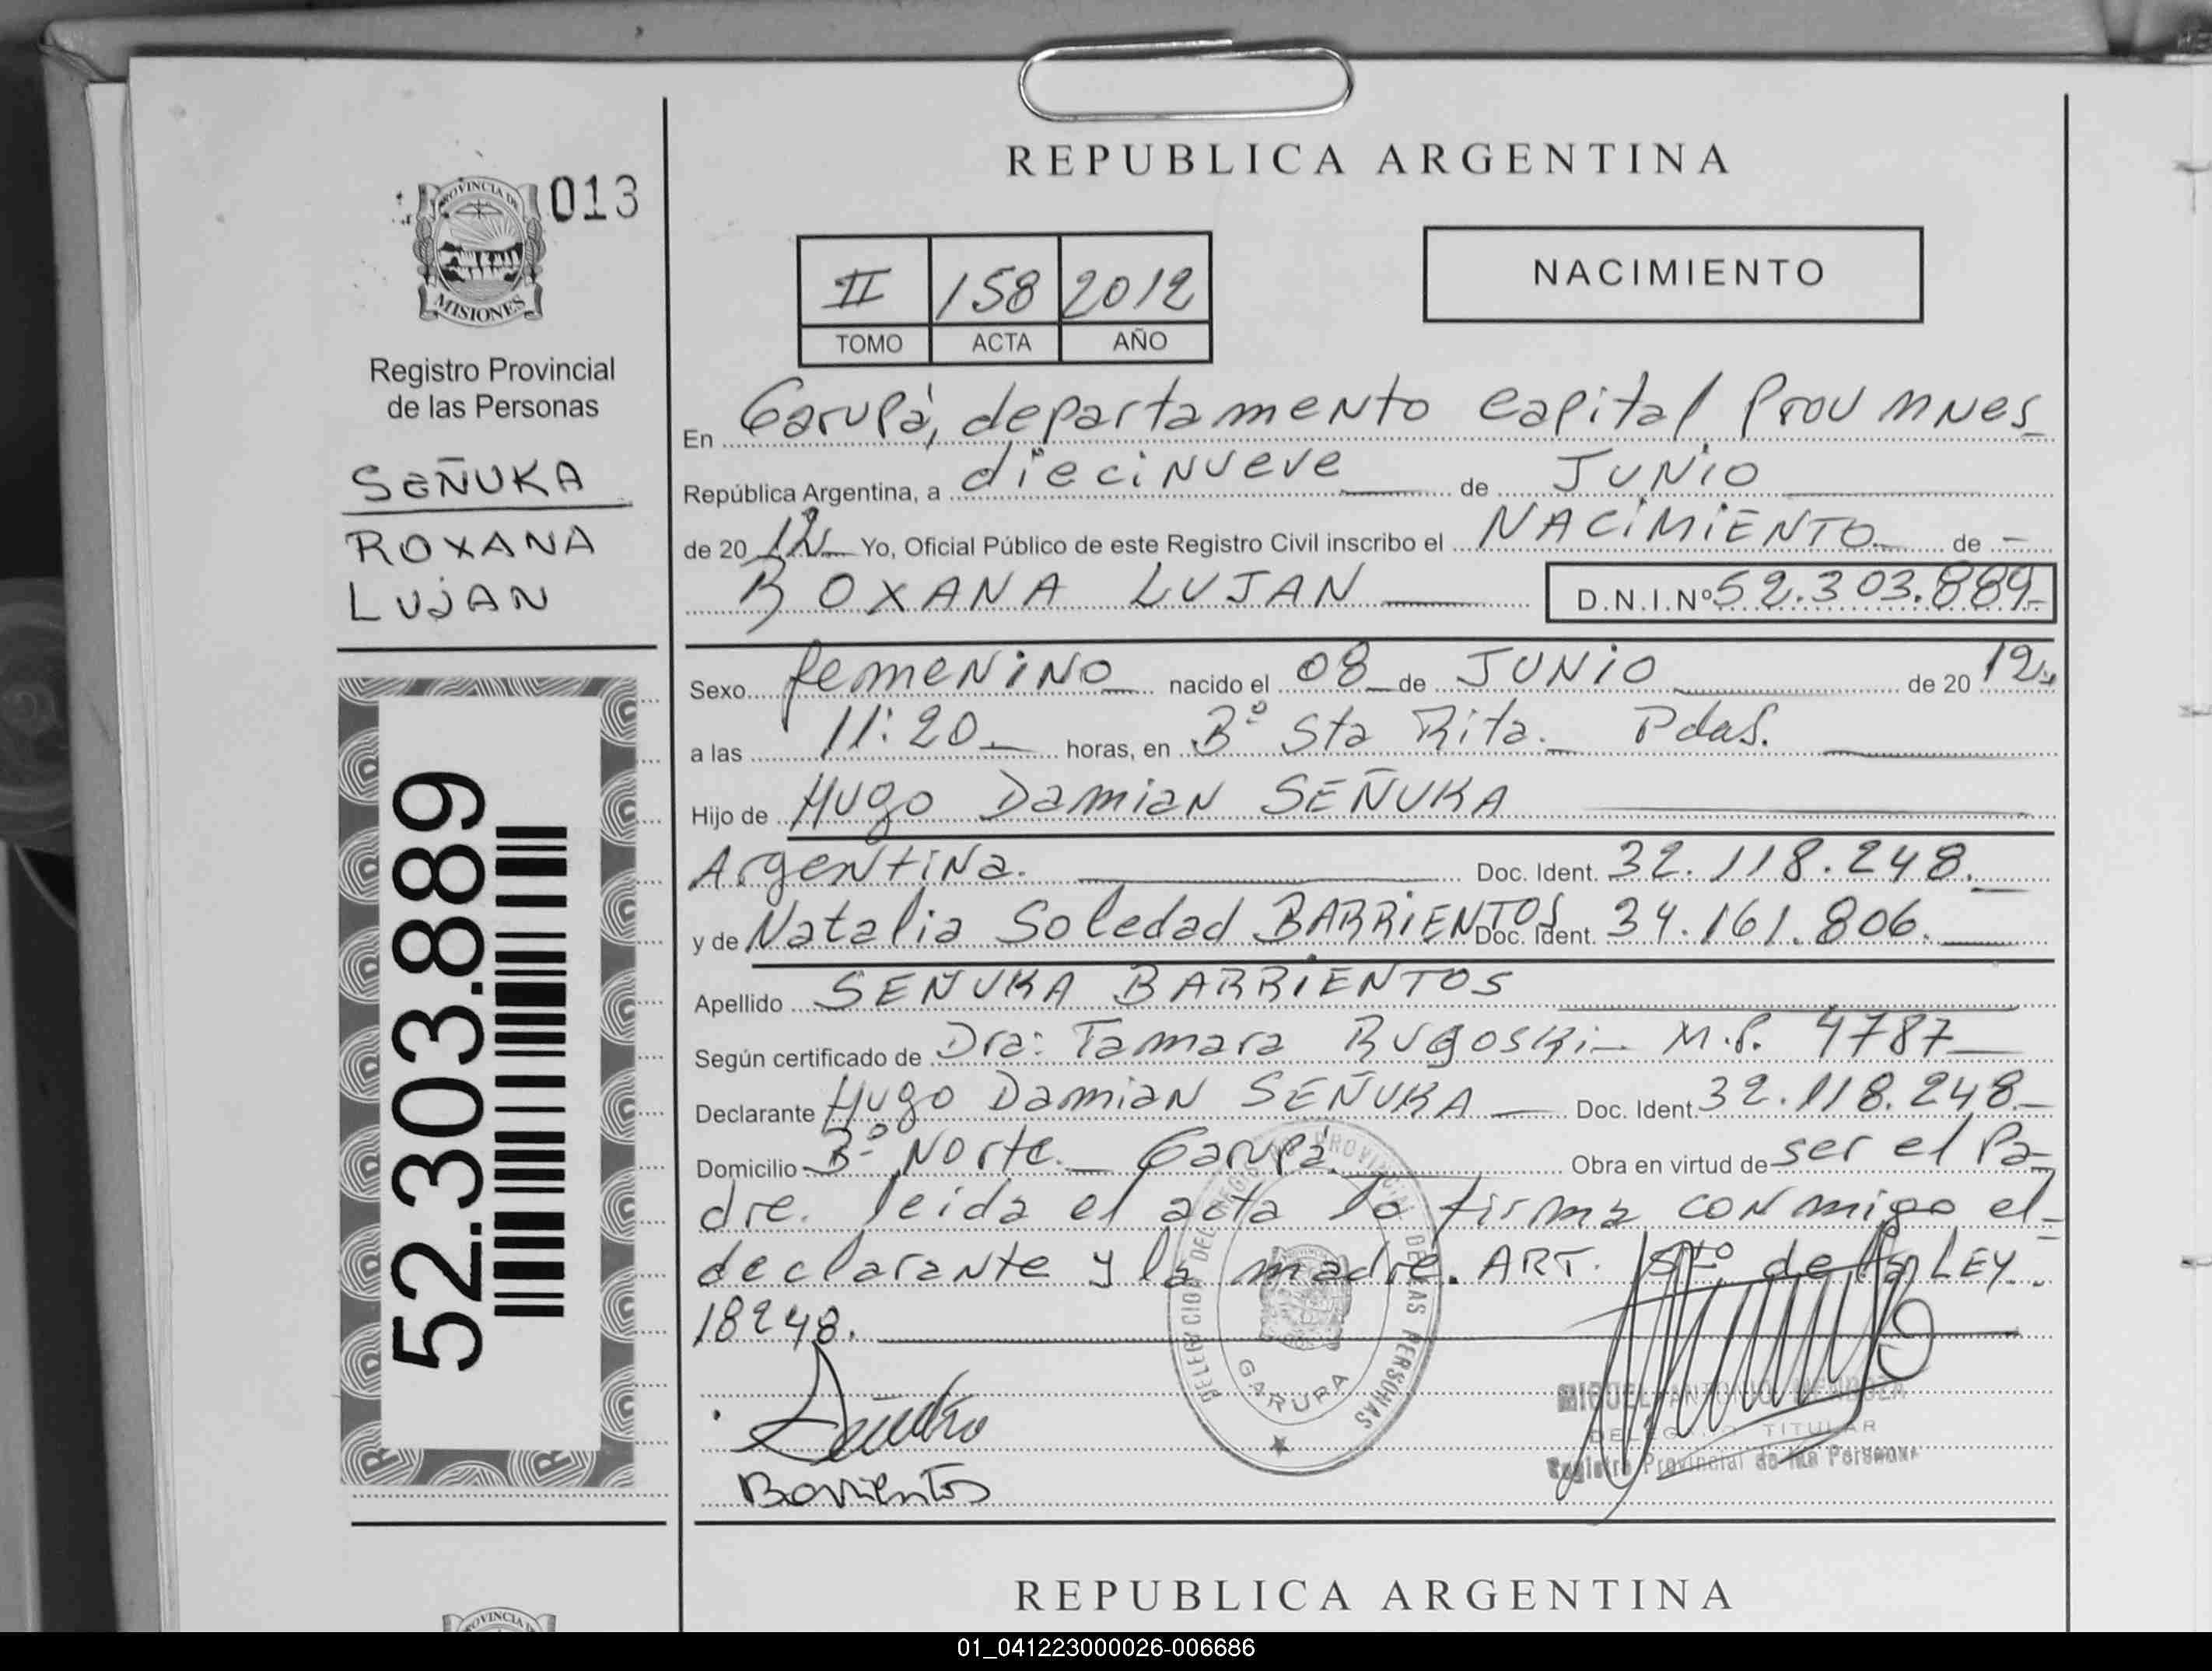 013
PROVINCIA DE
MISIONES
Registro Provincial
de las Personas
SEÑUKA
ROXANA
LUJAN
52.303.889
REPUBLICA ARGENTINA
II 158 2012
TOMO ACTA AÑO
NACIMIENTO
En Garupá, departamento Capital Prov Mnes
República Argentina, a diecinueve de JUNIO
de 20 12 Yo, Oficial Público de este Registro Civil inscribo el NACIMIENTO de
ROXANA LUJAN D.N.I.Nº 52.303.889-
Sexo femenino nacido el 08 de JUNIO de 20 12
a las 11:20 horas, en Bº Sta Rita. Pdas.
Hijo de Hugo Damian SEÑUKA
Argentina. Doc. Ident. 32.118.248.
y de Natalia Soledad BARRIENTOS Doc. Ident. 34.161.806.
Apellido SEÑUKA BARRIENTOS
Según certificado de Dra: Tamara Rugoski M.P. 4787
Declarante Hugo Damian SEÑUKA Doc. Ident. 32.118.248.
Domicilio Bº Norte. Garupá. Obra en virtud de ser el Pa-
dre. leida el acta la firma conmigo el
declarante y la madre. ART. 5to de la LEY.
18248.
DELEGACION DEL REGISTRO PROVINCIAL DE LAS PERSONAS
GARUPA
MIGUEL ANTONIO MENDOZA
DELEGADO TITULAR
Registro Provincial de las Personas
Barrientos
REPUBLICA ARGENTINA
PROVINCIA
01_041223000026-006686